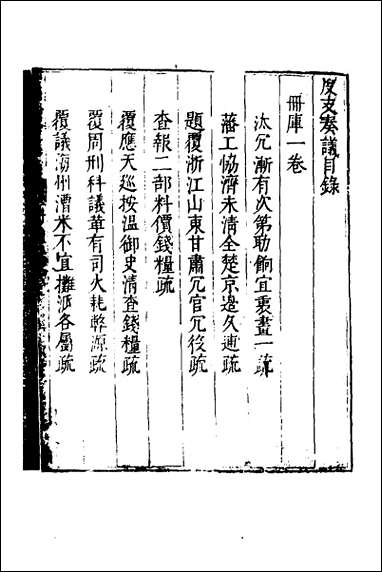 度支奏議目錄
冊庫一卷
汰冗漸有次第助餉宜裏畫一疏
藩工恊濟未清全楚京邊久逋疏
題覆浙江山東甘肅冗官冗役疏
查報二部料價錢糧疏
覆應天廵按溫御史清查錢糧疏
覆周刑科議革有司火耗弊源疏
覆議海州漕米不宜攤派各屬疏